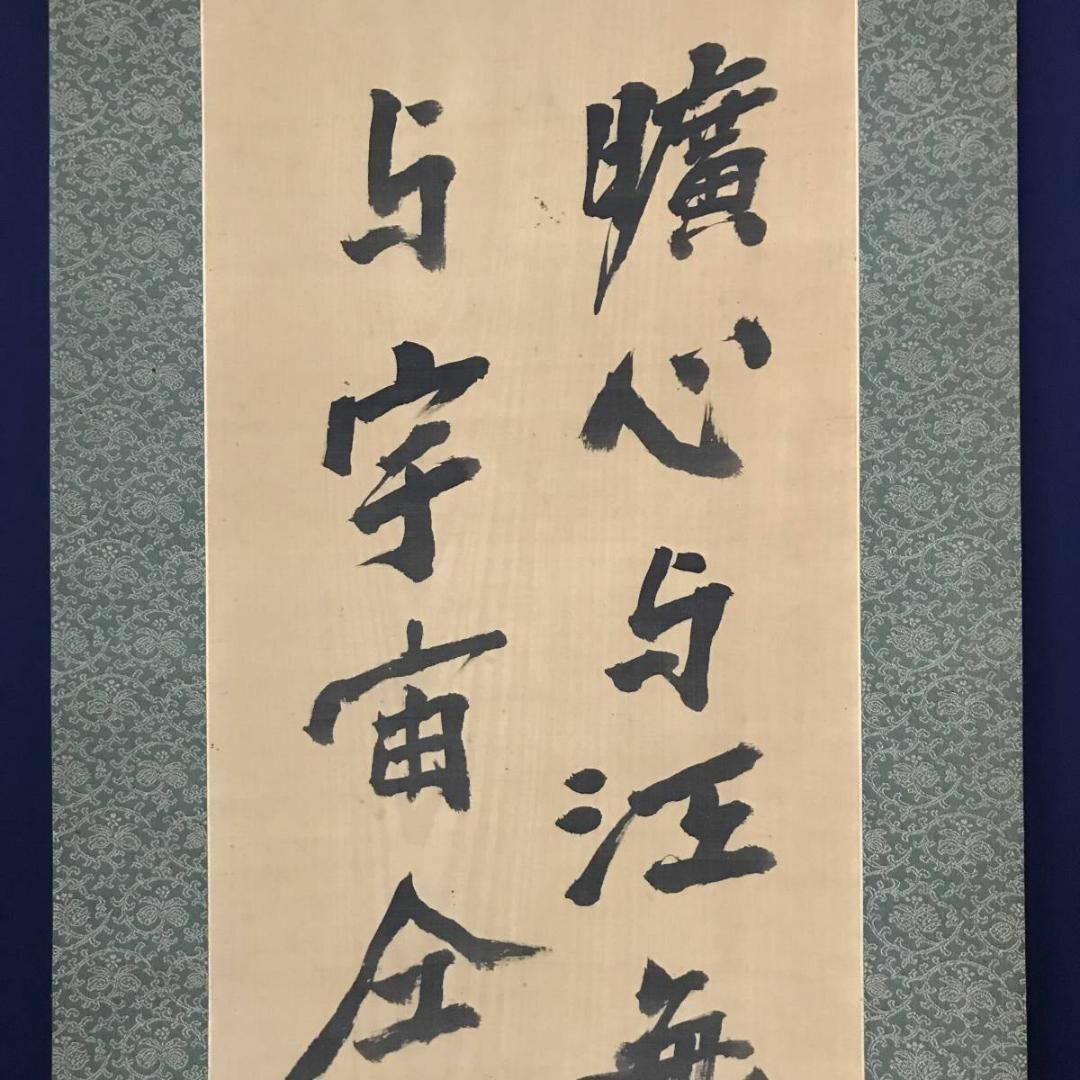 曠心与汪
与宇宙全